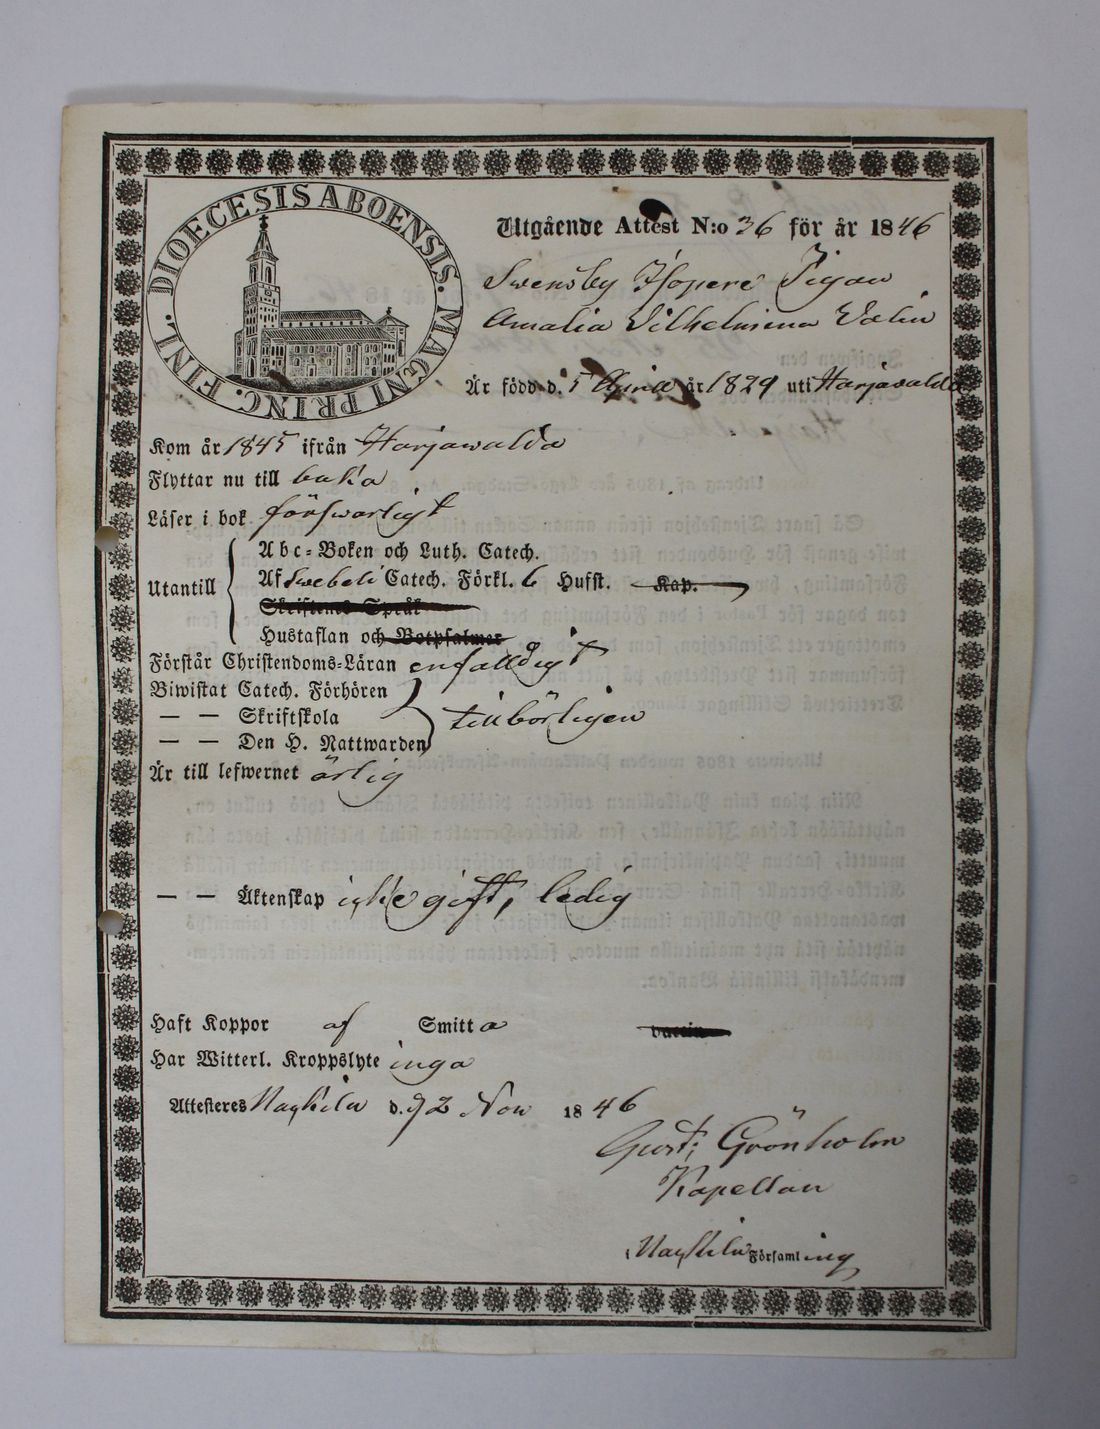 DIOECESIS ABOENSIS. MAGNI PRINC. FINL.
Utgående Attest N:o 36 för år 1846
Swensby Pigan
Amalia Vilhelmina Valin
Är född d. 5 April år 1829 uti Harjawalda
Kom år 1845 ifrån Harjawalda
Flyttar nu till baka
Läser i bok försvarligt
Abc-Boken och Luth. Catech.
Utantill
Af Swebeli Catech. Förkl. 6 Hufst. Kap.
Skriftenes Språk
Hustaflan och Botpsalmer
Förstår Christendoms-Läran enfalldigt
Biwistat Catech. Förhören
— — Skriftskola tillbörligen
— — Den H. Nattwarden
Är till lefwernet ärlig
— — Äktenskap icke gift, ledig
Haft Koppor af Smitta vaccin
Har Witterl. Kroppslyte inga
Attesteres Nakkila d. Nov 1846
Gust: Grönholm
Kapellan
i Nakkila Församling